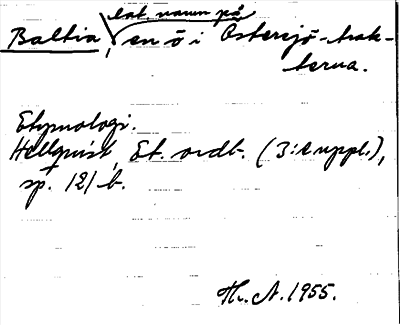 Baltia, lat. namn på
en ö i Östersjö-trak-
terna.
Etymologi.
Hellquist, Et. ordb. (3:e uppl.),
sp. 121 b.
Th. A. 1955.